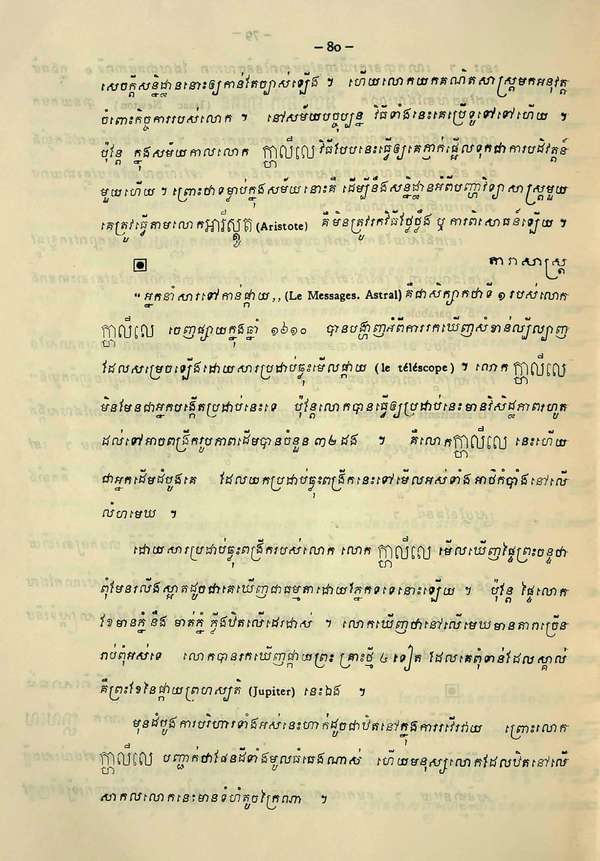 – 80 –
សេចក្តីសន្និដ្ឋាននោះឲ្យកាន់តែច្បាស់ឡើង ។ ហើយលោកយកគណិតសាស្ត្រមកអនុវត្ត
ចំពោះកិច្ចការរបស់លោក ។ នៅសម័យបច្ចុប្បន្ន វិធីទាំងនេះគេប្រើទូទៅទៅហើយ ។
ប៉ុន្តែ ក្នុងសម័យកាលលោក ហ្គាលីលេ វិធីបែបនេះធ្វើឲ្យគេភ្ញាក់ផ្អើលទុកជាការបដិវត្តន៍
មួយហើយ ។ ព្រោះថាទម្លាប់ក្នុងសម័យនោះគឺ ដើម្បីនឹងសន្និដ្ឋានអំពីបញ្ហាវិទ្យាសាស្ត្រមួយ
គេត្រូវធ្វើតាមលោកអារីស្តូត (Aristote) គឺមិនត្រូវរកវិធីថ្លៃថ្លឹង ឬ ការពិសោធន៍ឡើយ ។
តារាសាស្ត្រ
“ អ្នកនាំសារទៅកាន់ផ្កាយ,, (Le Messages. Astral) គឺជាសិក្សាកថាទី ១ របស់លោក
ហ្គាលីលេ ចេញផ្សាយក្នុងឆ្នាំ ១៦១០ បានបង្ហាញអំពីការរកឃើញសំខាន់ល្បីល្បាញ
ដែលសម្រេចឡើងដោយសារប្រដាប់ឆ្លុះមើលផ្កាយ (le téléscope) ។ លោក ហ្គាលីលេ
មិនមែនជាអ្នកបង្កើតប្រដាប់នេះទេ ប៉ុន្តែលោកបានធ្វើឲ្យប្រដាប់នេះមានវិសិដ្ឋភាពរហូត
ដល់ទៅអាចពង្រីករូបភាពដើមបានចំនួន ៣២ ដង ។ គឺលោកហ្គាលីលេ នេះហើយ
ជាអ្នកដើមដំបូងគេ ដែលយកប្រដាប់ឆ្លុះពង្រីកនេះទៅមើលអស់ទាំង អាថ៌កំបាំងនៅលើ
លំហមេឃ ។
ដោយសារប្រដាប់ឆ្លុះពង្រីករបស់លោក លោក ហ្គាលីលេ មើលឃើញផ្ទៃព្រះចន្ទថា
ពុំមែនរលីងស្អាតដូចជាគេឃើញជាធម្មតាដោយភ្នែកទទេនោះឡើយ ។ ប៉ុន្តែ ផ្ទៃលោក
ខែមានភ្នំ នឹង មាត់ភ្នំ ភ្លើងឋិតលើដេរដាស់ ។ លោកឃើញថានៅលើមេឃមានតារាច្រើន
រាប់ពុំអស់ទេ លោកបានរកឃើញផ្កាយព្រះ គ្រោះថ្មី ៤ ទៀត ដែលគេពុំទាន់ដែលស្គាល់
គឺព្រះខែនៃផ្កាយព្រហស្បតិ៍ (Jupiter) នេះឯង ។
មុនដំបូងការបរិហារទាំងអស់នេះហាក់ដូចជាឋិតនៅក្នុងការរវើរវាយ ព្រោះលោក
ហ្គាលីលេ បញ្ជាក់ថាផែនដីទាំងមូលធំធេងណាស់ ហើយមនុស្សលោកដែលឋិតនៅលើ
សាកលលោកនេះមានទំហំតូចក្រៃណា ។